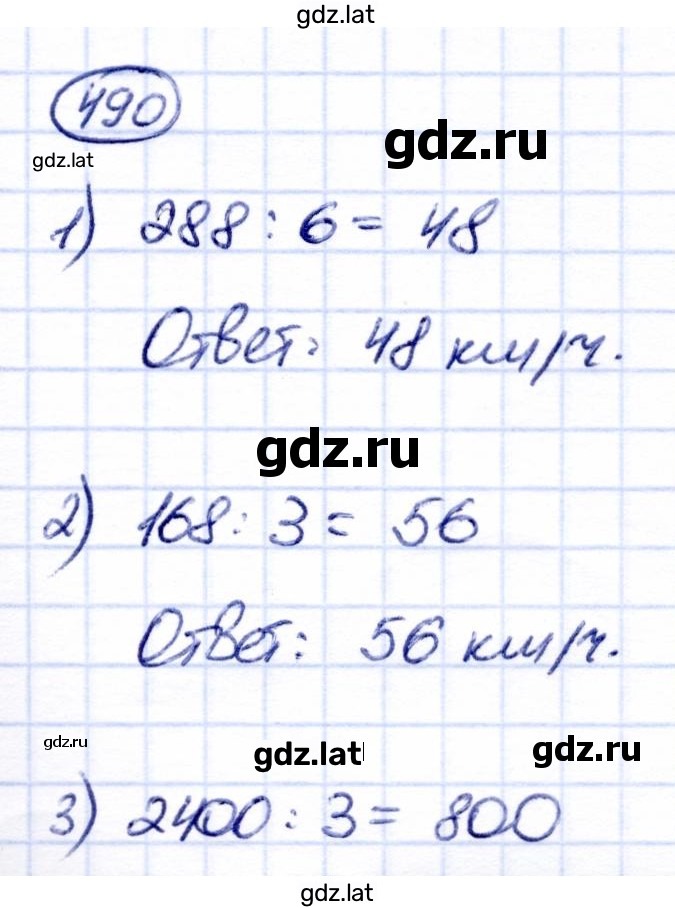 gdz.lat
490
gdz.lat
gdz.ru
1) 288 : 6 = 48
Ответ: 48 км/ч.
gdz.ru
2) 168 : 3 = 56
Ответ: 56 км/ч.
gdz.ru
gdz.lat
gdz.ru
3) 2400 : 3 = 800
gdz.lat